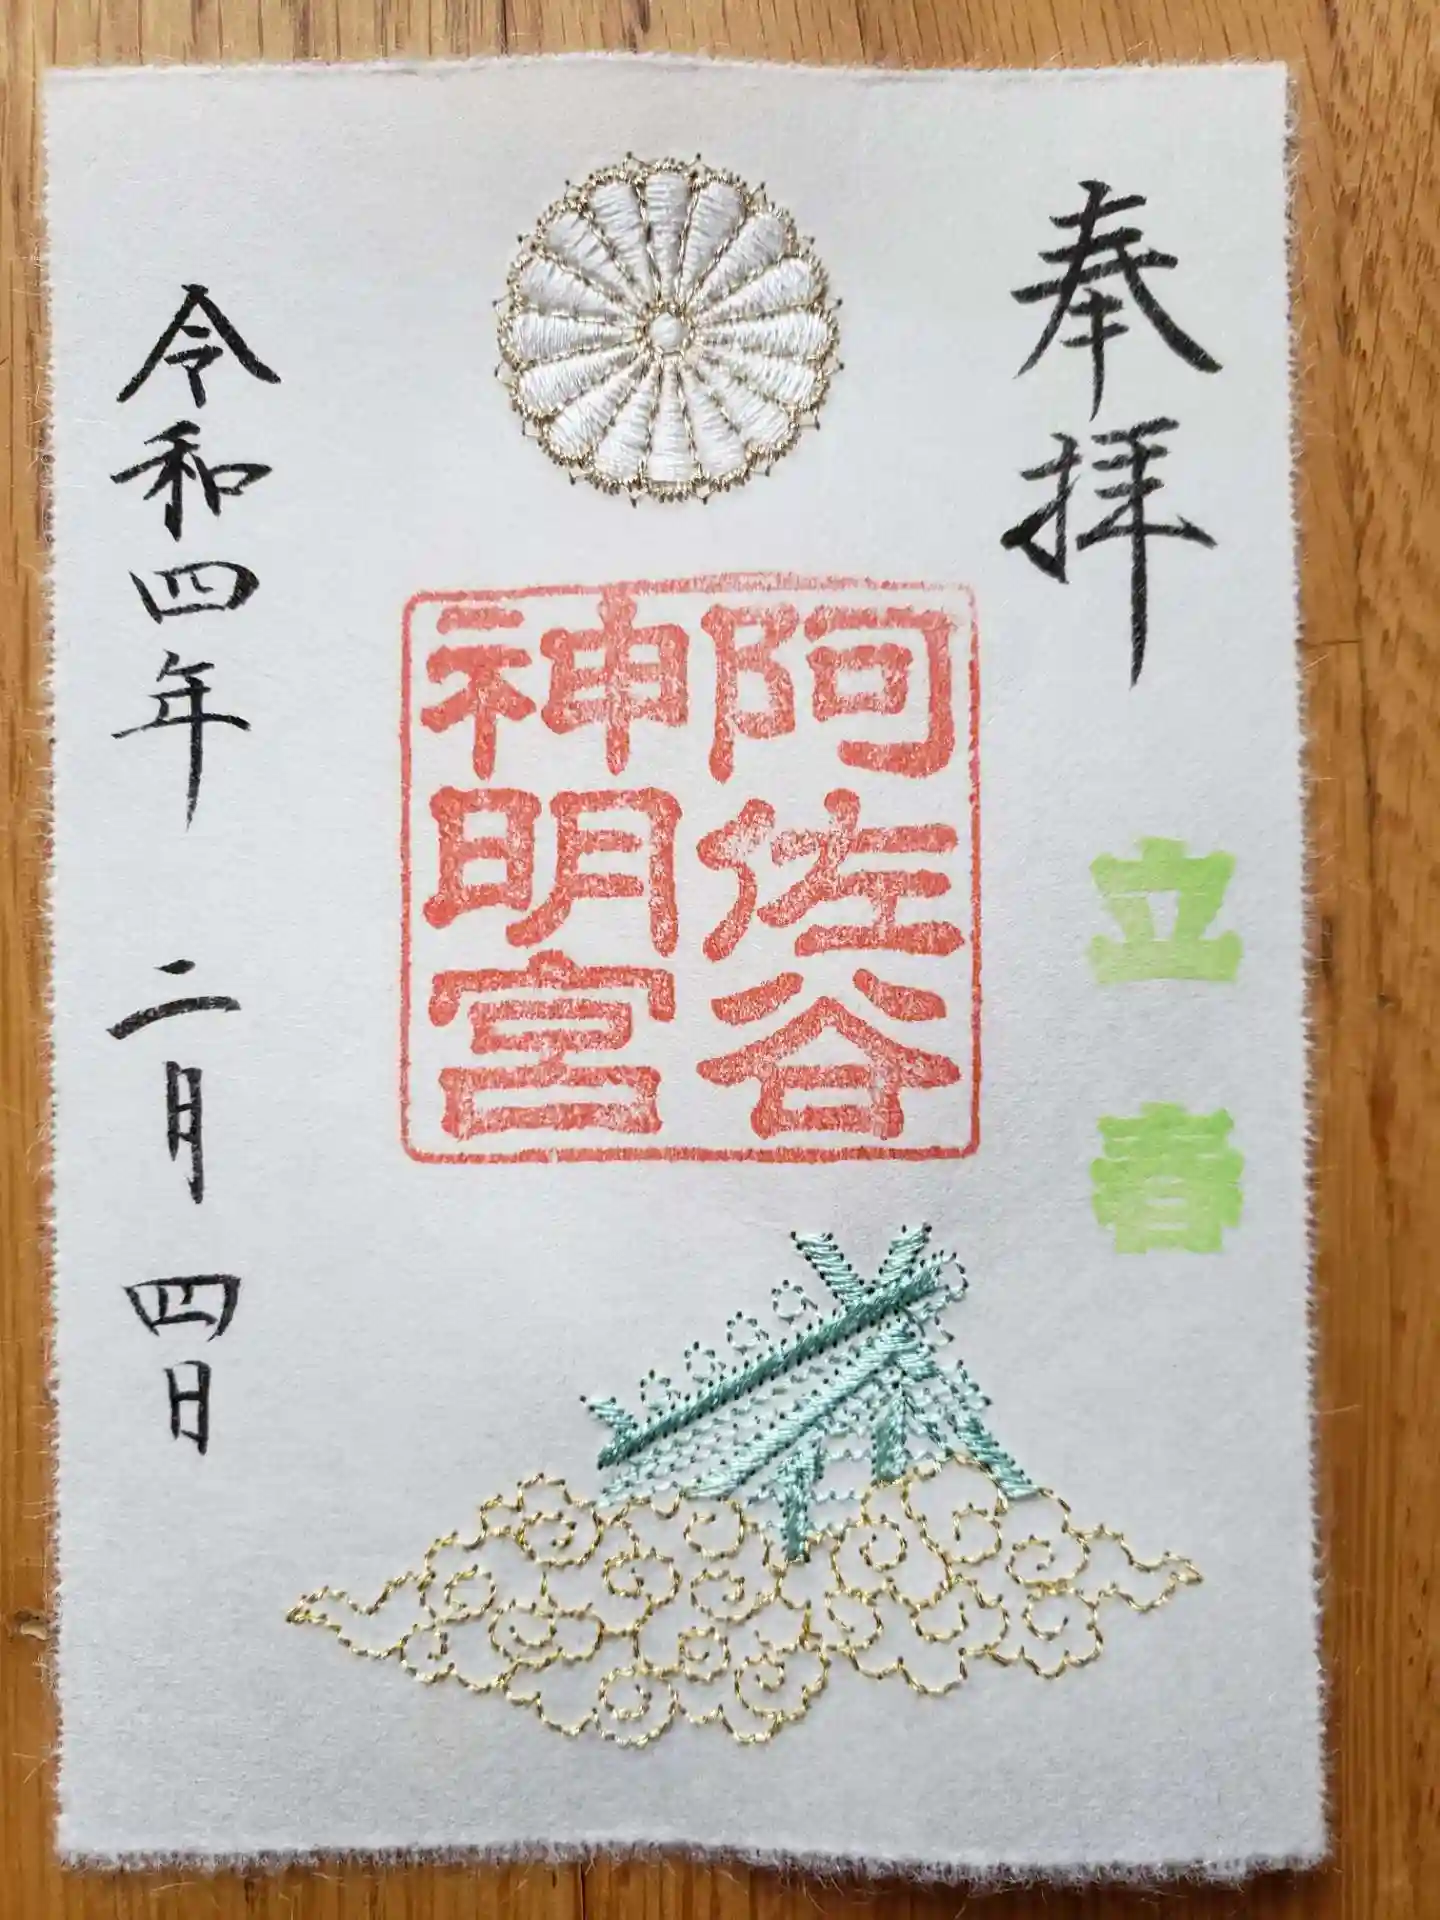 奉拝
立春
阿佐谷
神明宮
令和四年 二月 四日